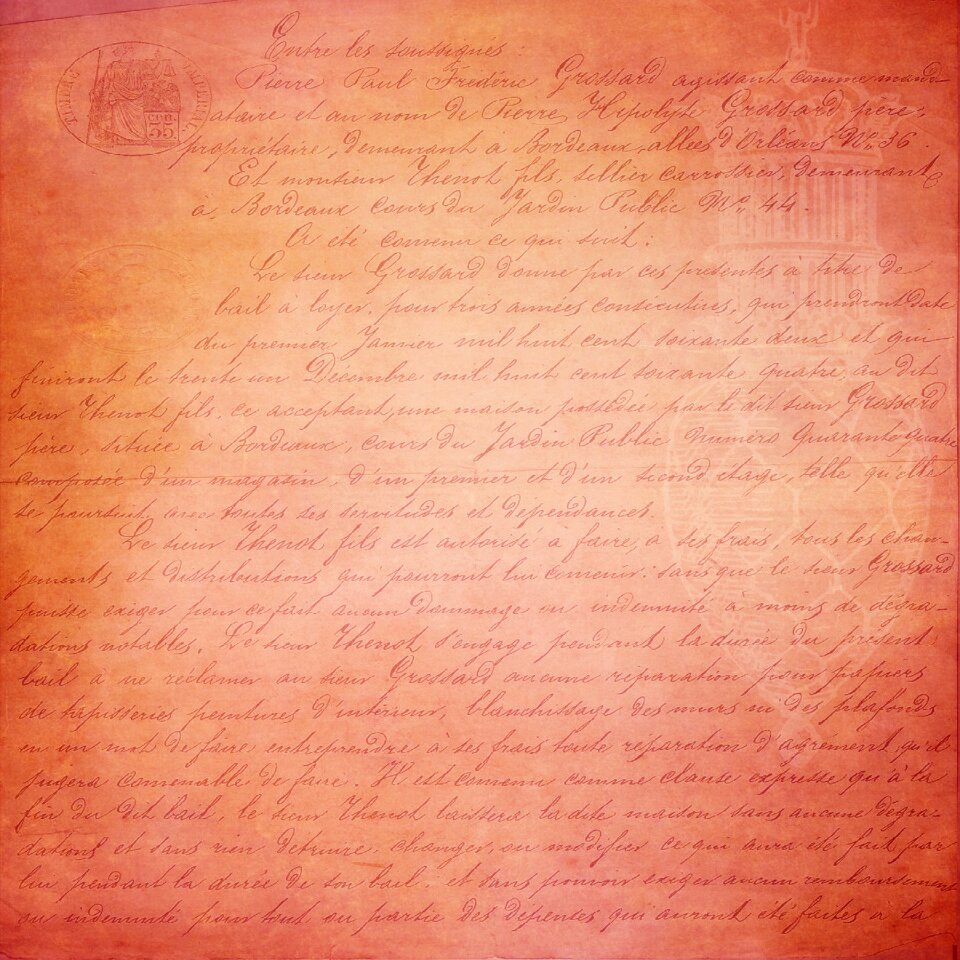 TIMBRE IMPERIAL
CEN. 55
Entre les soussignés :
Pierre Paul Frédéric Grossard agissant comme manda-
ataire et au nom de Pierre Hipolyte Grossard père,
propriétaire, demeurant à Bordeaux, allées d'Orléans No. 36
Et monsieur Thenot fils, sellier carrossier, demeurant
à Bordeaux cours du Jardin Public No. 44.
A été convenu ce qui suit :
Le sieur Grossard donne par ces présentes à titre de
bail à loyer, pour trois années consécutives, qui prendront date
du premier Janvier mil huit cent soixante deux et qui
finiront le trente un Décembre mil huit cent soixante quatre, au dit
sieur Thenot fils, ce acceptant, une maison possédée par le dit sieur Grossard
père, située à Bordeaux, cours du Jardin Public numéro quarante quatre
composée d'un magasin, d'un premier et d'un second étage, telle qu'elle
se poursuit, avec toutes ses servitudes et dépendances.
Le sieur Thenot fils est autorisé à faire, à ses frais, tous les chan-
gements et distributions qui pourront lui convenir : sans que le sieur Grossard
puisse exiger pour ce fait aucun dommage ou indemnité à moins de dégra-
dations notables. Le sieur Thenot s'engage pendant la durée du présent
bail à ne réclamer au sieur Grossard aucune réparation pour papiers
de tapisseries peintures d'intérieur, blanchissage des murs ni des plafonds
en un mot de faire entreprendre à ses frais toute réparation d'agrément, qu'il
jugera convenable de faire. Il est convenu comme clause expresse qu'à la
fin du dit bail, le sieur Thenot laissera la dite maison sans aucune dégra-
dations et sans rien détruire, changer, ou modifier ce qui aura été fait par
lui pendant la durée de son bail, et sans pouvoir exiger aucun remboursement
ou indemnité pour tout ou partie des dépenses qui auront été faites à la